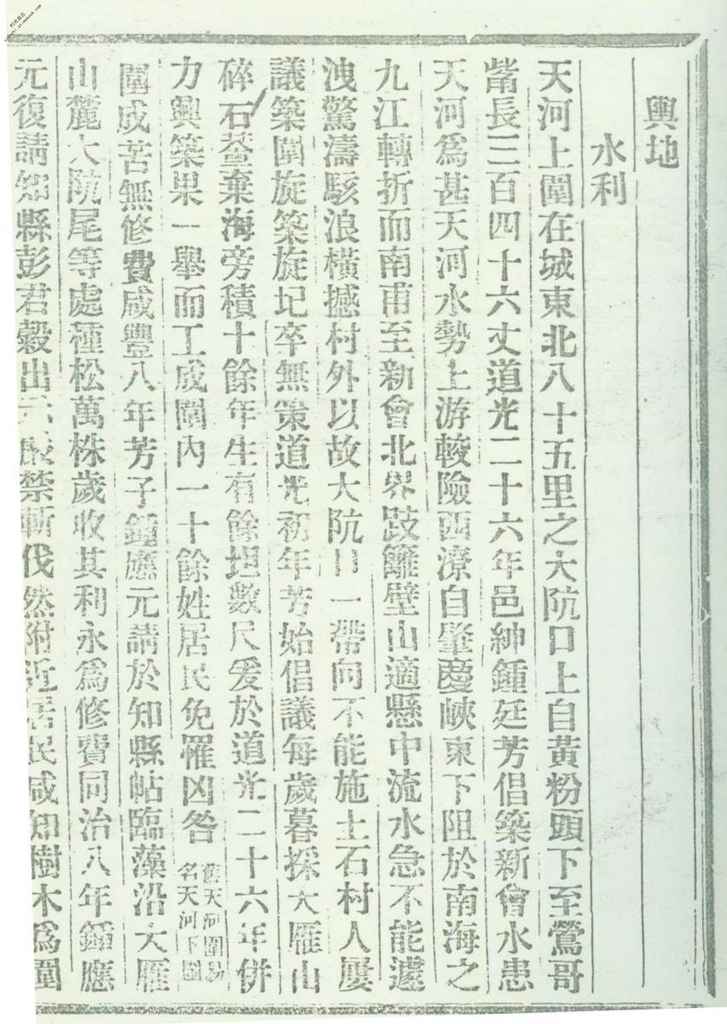 輿地
水利
天河上圍在城東北八十五里之大阬口上自黃粉頭下至鶯哥
觜長三百四十六丈道光二十六年邑紳鍾廷芳倡築新會水患
天河爲甚天河水勢上游較險西潦自肇慶峽東下阻於南海之
九江轉折而南甫至新會北界跂籬壁山適懸中流水急不能遽
洩驚濤駭浪橫撼村外以故大阬口一帶向不能施土石村人屢
議築圍旋築旋圮卒無策道光初年芳始倡議每歲暮採大雁山
碎石薹棄海旁積十餘年生有餘坦數尺爰於道光二十六年併
力興築果一舉而工成圍內一十餘姓居民免罹凶咎舊天河圍易名天河下圍
圍成苦無修費咸豐八年芳子鍾應元請於知縣帖臨藻沿大雁
山麓大阬尾等處種松萬株歲收其利永爲修費同治八年鍾應
元復請知縣彭君穀出示嚴禁斬伐然附近居民咸知樹木爲圍